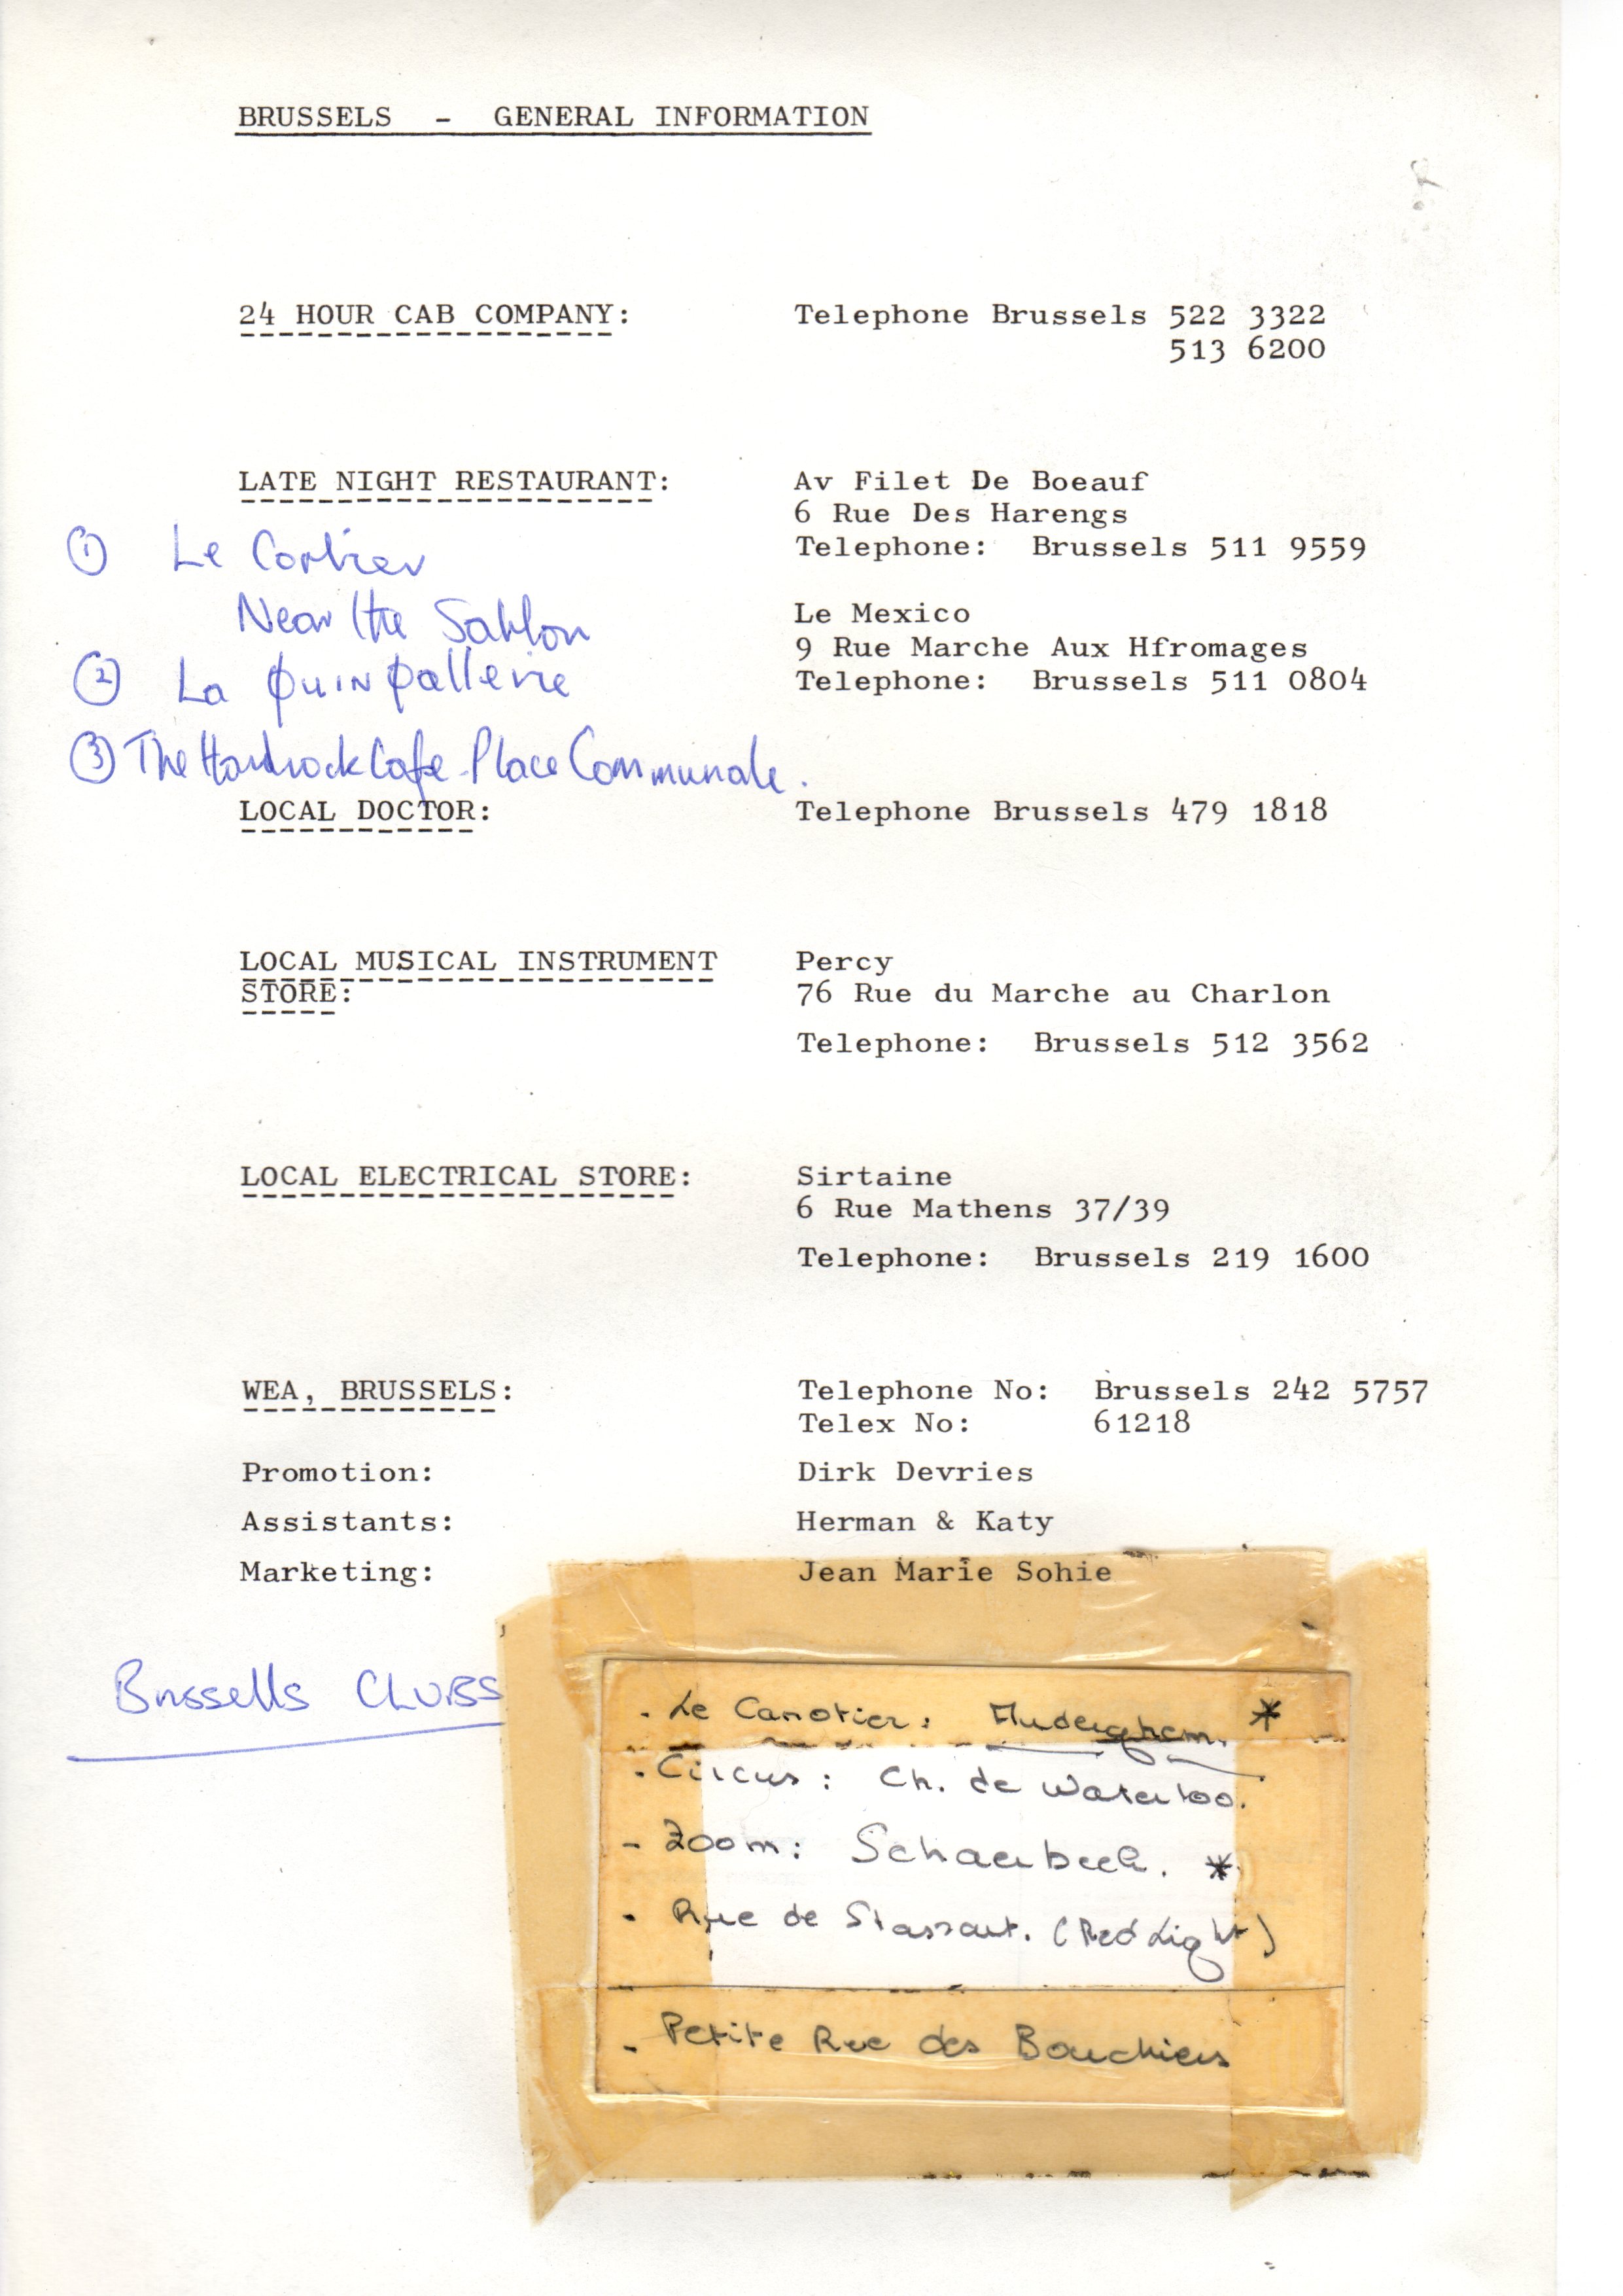 BRUSSELS - GENERAL INFORMATION
24 HOUR CAB COMPANY: Telephone Brussels 522 3322
513 6200
LATE NIGHT RESTAURANT: Av Filet De Boeauf
6 Rue Des Harengs
Telephone: Brussels 511 9559
Le Mexico
9 Rue Marche Aux Hfromages
Telephone: Brussels 511 0804
① Le
Near the Sablon
② La
③ The Hardrock Cafe - Place Communale.
LOCAL DOCTOR: Telephone Brussels 479 1818
LOCAL MUSICAL INSTRUMENT Percy
STORE: 76 Rue du Marche au Charlon
Telephone: Brussels 512 3562
LOCAL ELECTRICAL STORE: Sirtaine
6 Rue Mathens 37/39
Telephone: Brussels 219 1600
WEA, BRUSSELS: Telephone No: Brussels 242 5757
Telex No: 61218
Promotion: Dirk Devries
Assistants: Herman & Katy
Marketing: Jean Marie Sohie
Brussells CLUBS
- Le Canotier: *
- Circus: Ch. de Waterloo.
- Zoom: Schaerbeek. *
- Rue de Stassart. (Red Light)
- Petite Rue des Bouchiers